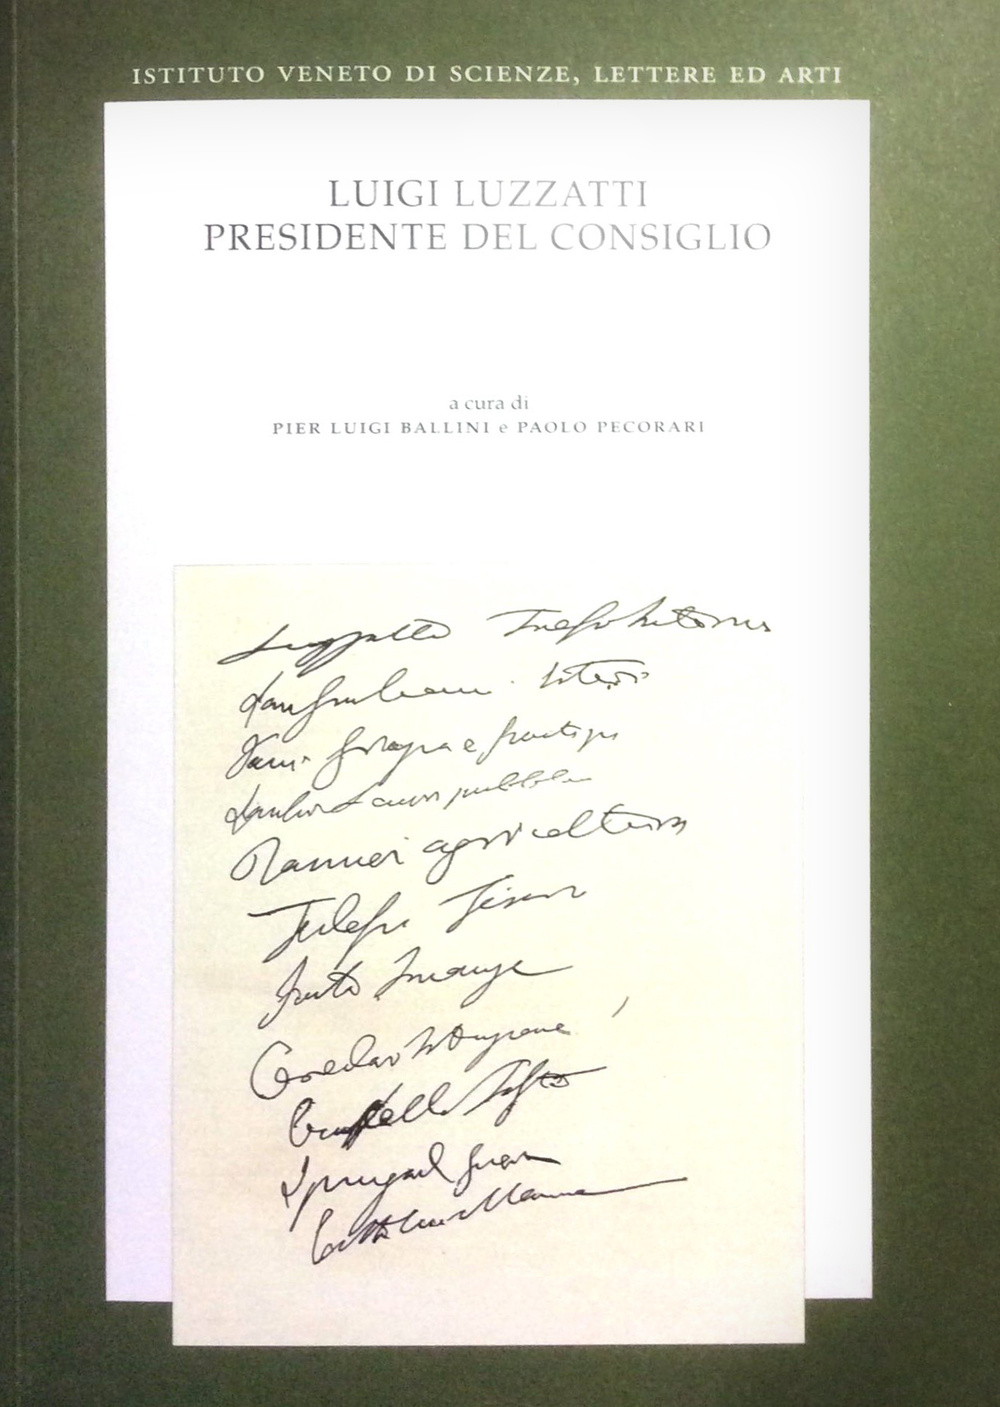 ISTITUTO VENETO DI SCIENZE, LETTERE ED ARTI
LUIGI LUZZATTI
PRESIDENTE DEL CONSIGLIO
a cura di
PIER LUIGI BALLINI e PAOLO PECORARI
Luzzatti
Sangiuliano Esteri
Fani e giustizia
pubblici
Raineri agricoltura
Tedesco Tesoro
Facta Finanze
Credaro Istruzione
Ciuffelli Poste
Spingardi guerra
Marina